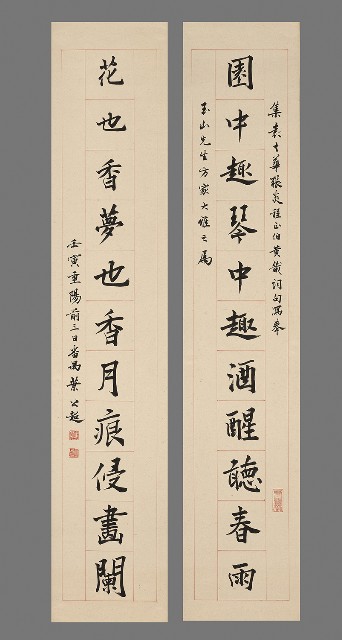 集袁去華張炎程正伯黃機詞句寫奉
園中趣琴中趣酒醒聽春雨
玉山先生方家大雅之屬
花也香夢也香月痕侵畫闌
壬寅重陽前三日番禺葉公超